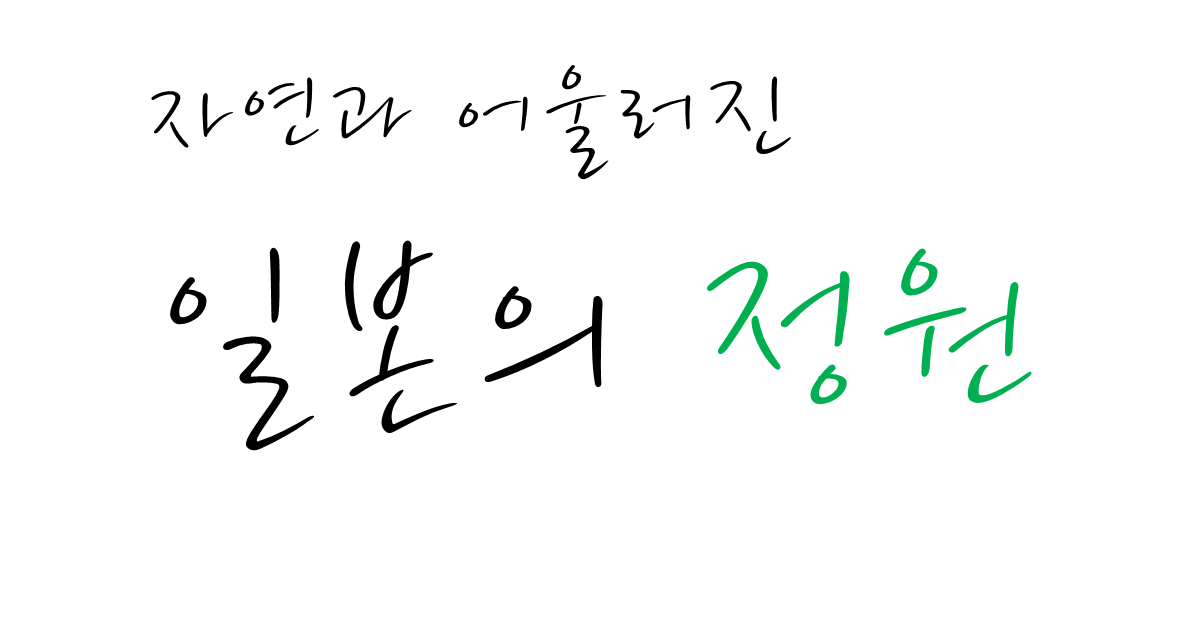 자연과 어울러진
일본의 정원